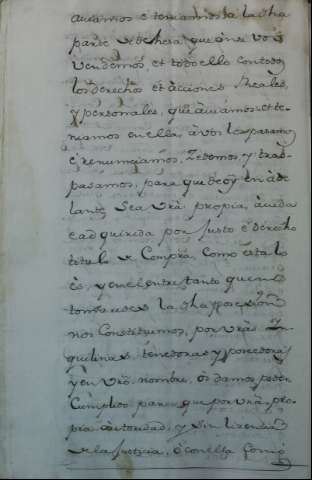 auiamos e teniamos a la dha
parte de dehesa, que ansi vos
vendemos, et todo ello con todos
los derechos et acciones Reales,
y personales, que auiamos, et te-
niamos en ella, à vos los pasamos
è renunciamos, Zedemos, y tras-
pasamos, para que de oy en ade
lante sea vrã propia, auida
è adquirida por justo è derecho
titulo de compra, como esta lo
és, y en el entre tanto que
tomades la dha possession
nos Constituimos, por vrãs In-
quilinas tenedoras y poseedoras
y en vrõ nombre, ôs damos poder
Cumplido para que por vrã pro-
pia autoridad, y sin lizencia
de la Justicia, ò con ella como